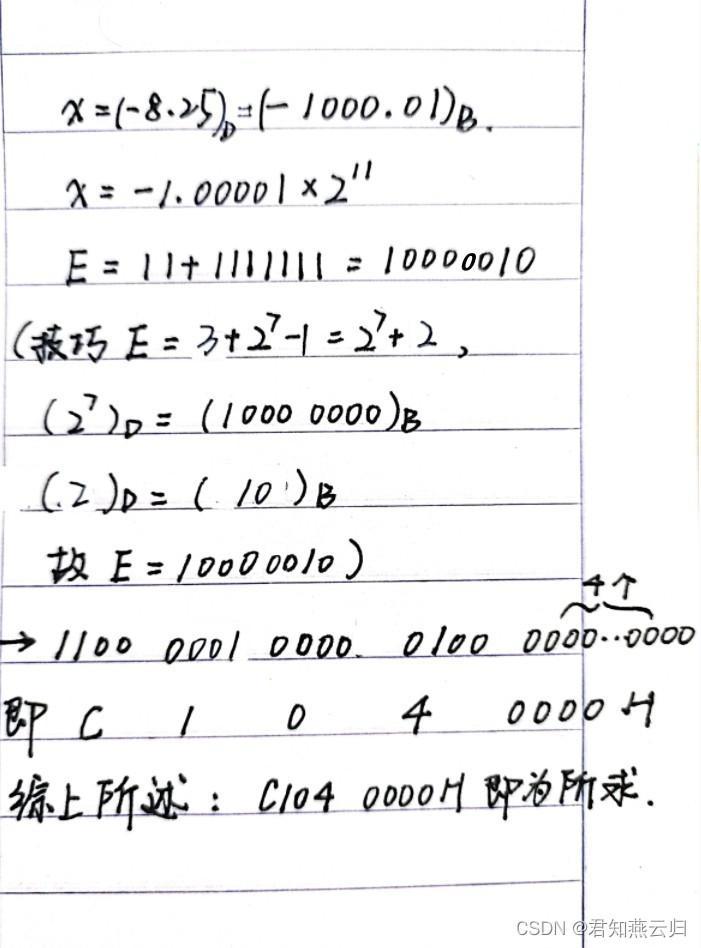 x=(-8.25)D=(-1000.01)B.
x=-1.00001×2^11
E=11+1111111=10000010
(技巧 E=3+2^7-1=2^7+2,
(2^7)D=(1000 0000)B
(2)D=(10)B
故 E=10000010)
4个
→1100 0001 0000. 0100 0000··0000
即 C 1 0 4 0000H
综上所述：C104 0000H 即为所求.
CSDN @君知燕云归